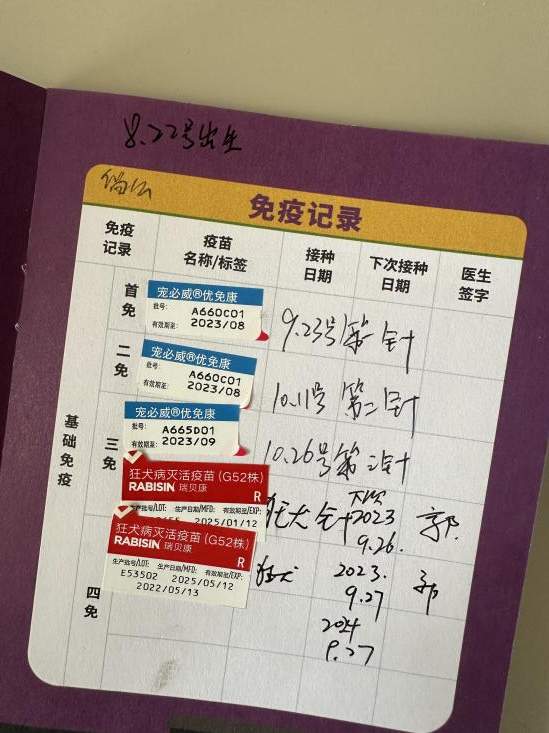 8.22号出生
免疫记录
免疫记录 疫苗名称/标签 接种日期 下次接种日期 医生签字
基础免疫
首免
宠必威®优免康
批号: A660C01
有效期至: 2023/08
9.23号第一针
二免
宠必威®优免康
批号: A660C01
有效期至: 2023/08
10.11号 第二针
三免
宠必威®优免康
批号: A665D01
有效期至: 2023/09
10.26号第三针
狂犬病灭活疫苗(G52株)
RABISIN 瑞贝康
R
生产批号/LOT: 生产日期/MFD: 有效期至/EXP:
2025/01/12
狂犬针 下次 2023 9.26. 郭
四免
狂犬病灭活疫苗(G52株)
RABISIN 瑞贝康
R
生产批号/LOT: 生产日期/MFD: 有效期至/EXP:
E53502 2025/05/12
2022/05/13
狂犬 2023. 9.27 郭
2024 9.27